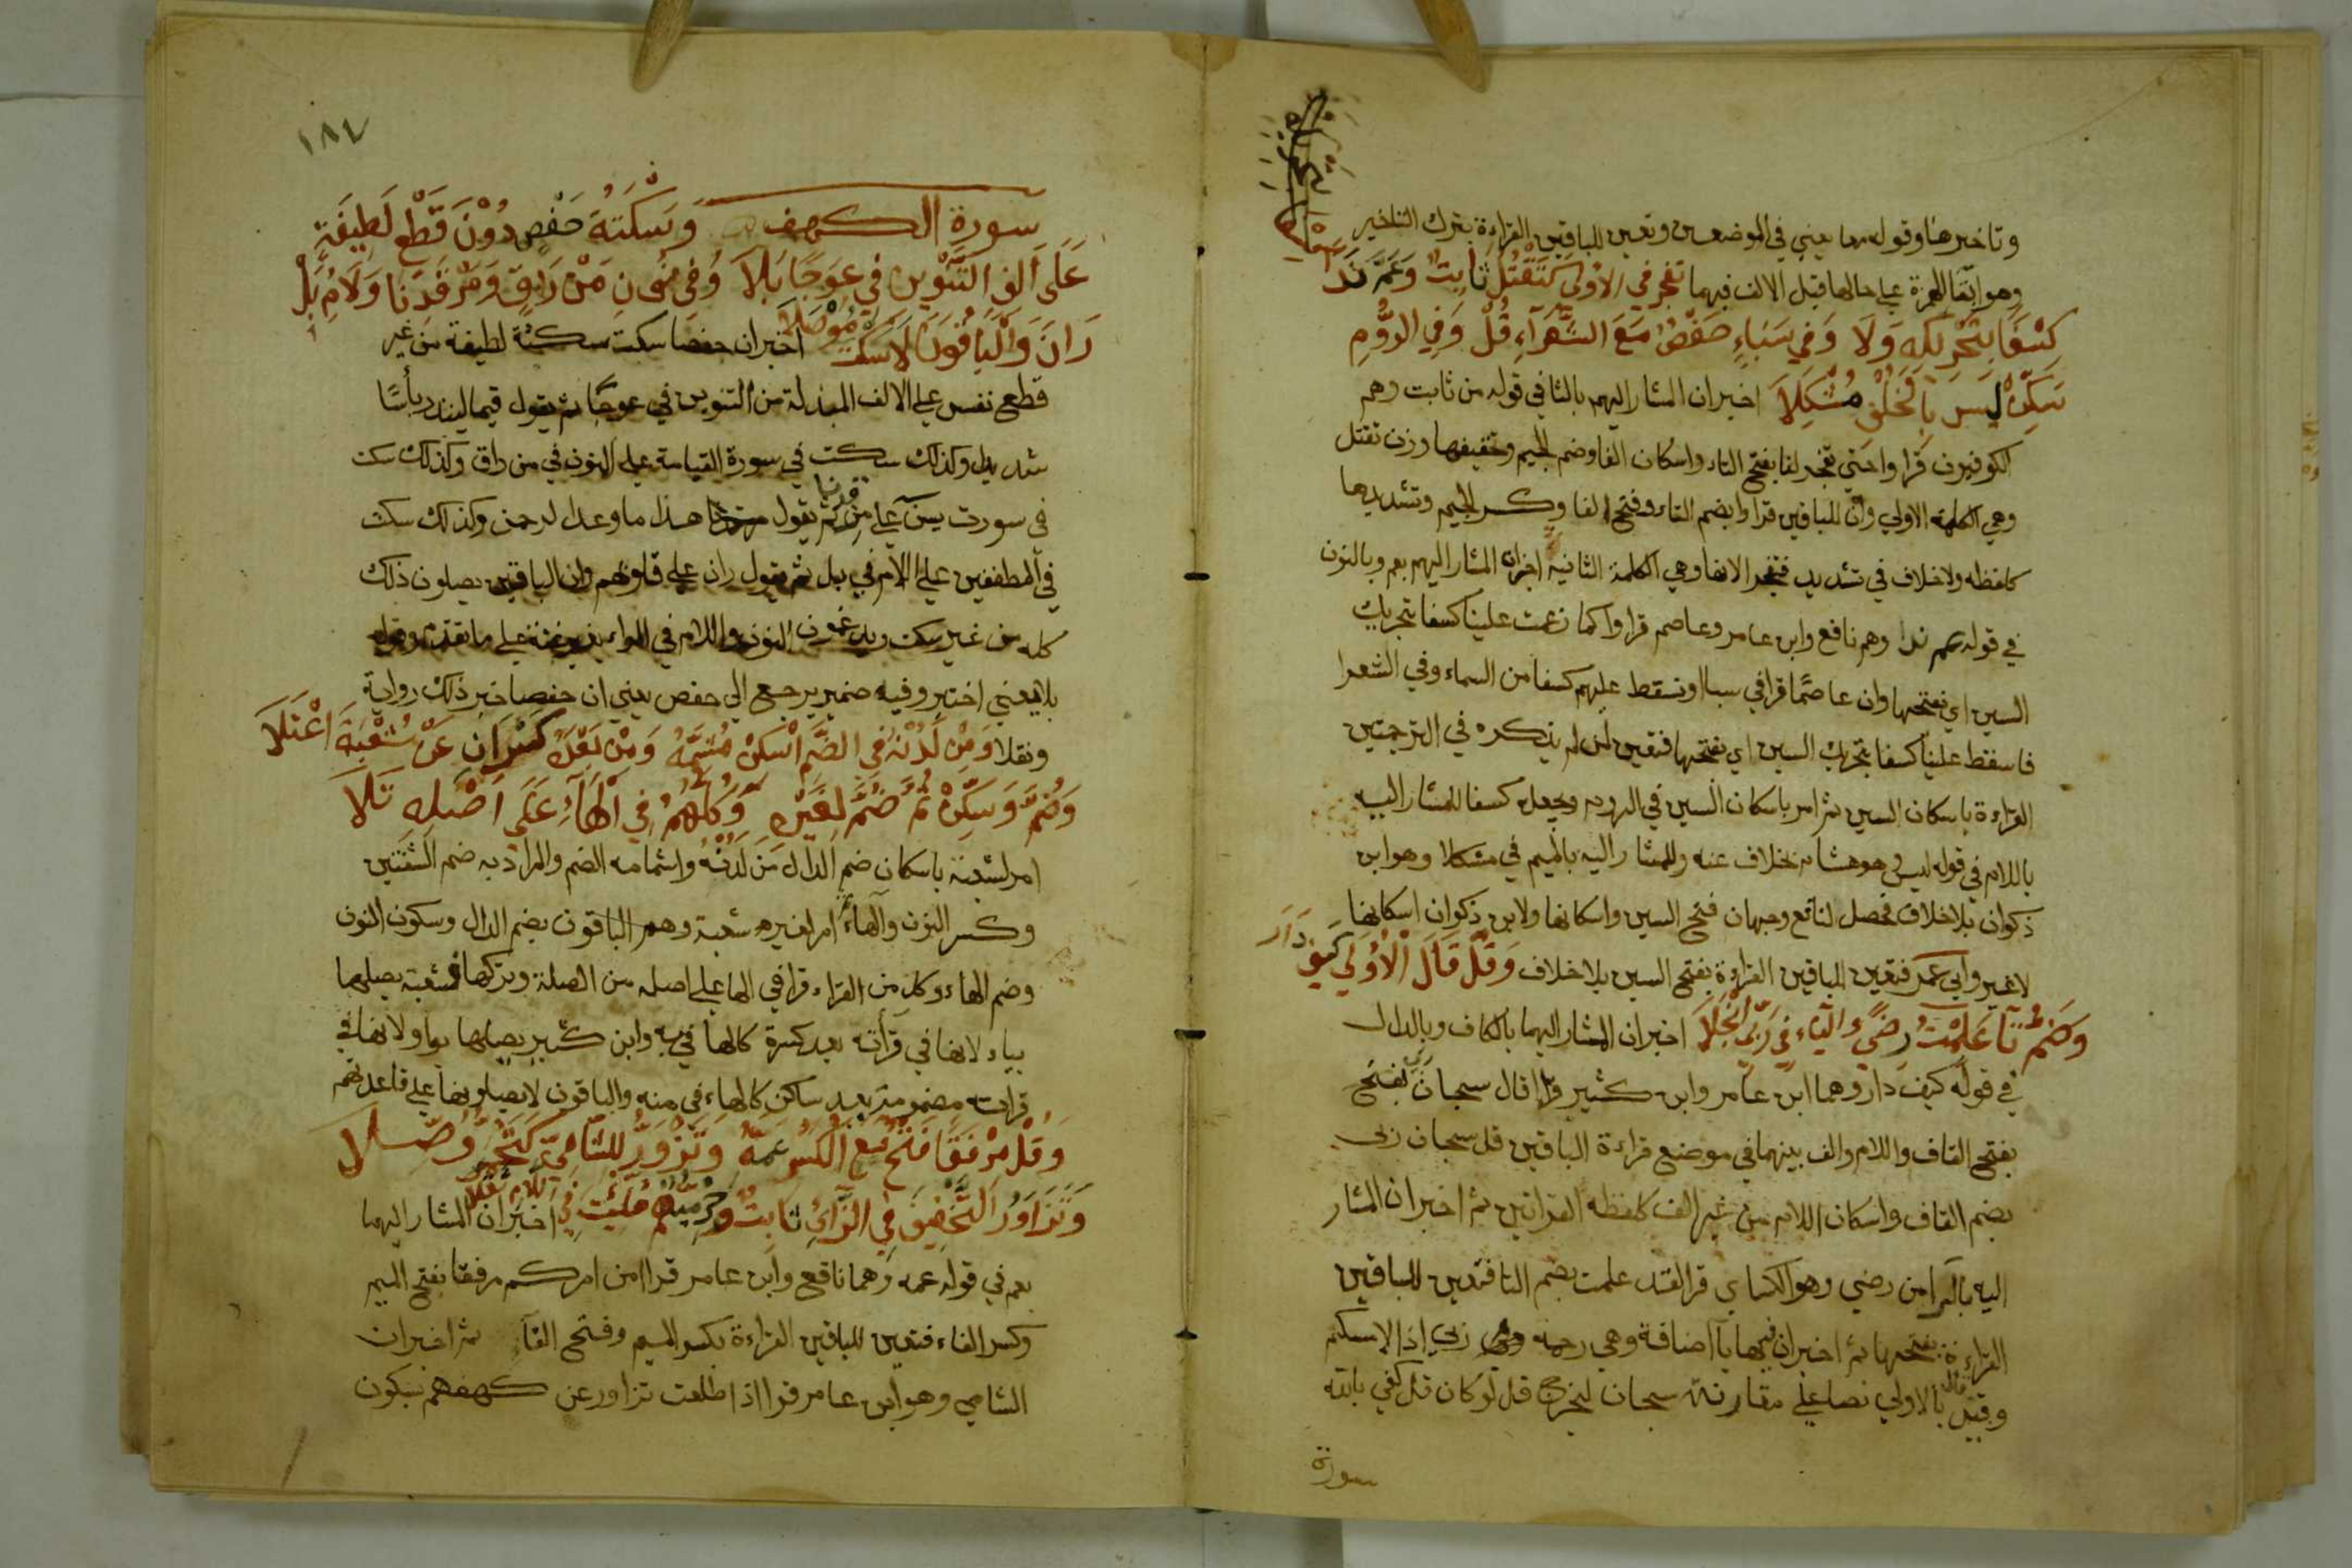 وتاخيرها وقوله معا يعني في الموضعين وتعين للباقين القراءة بترك التاخير
وهو ابقا الهمزة على حالها قبل الالف فيهما تفجر في الاولى كتقتل ثابت وعم ندا
كسفا بتحريكه ولا وفي سباء حفص مع الشعراء قل وفي الروم
سكن ليس بالخلف مشكلا اخبر ان المشار اليهم بالثا في قوله من ثابت وهم
الكوفيون قراوا حتى تفجر لنا بفتح التاء واسكان الفا وضم الجيم وتخفيفها وزن تقتل
وهي الكلمة الاولي وان للباقين قراوا بضم التاء وفتح الفا وكسر الجيم وتشديدها
كلفظه ولا خلاف في تشديد فتفجر الانها وهي الكلمة الثانية اخبر ان المشار اليهم بعم وبالنون
في قوله عم ندا وهم نافع وابن عامر وعاصم قراوا كما زعمت علينا كسفا بتحريك
السين اي بفتحها وان عاصما قرا في سبا او نسقط عليهم كسفا من السماء وفي الشعرا
فاسقط علينا كسفا بتحريك السين اي بفتحها فتعين لمن لم يذكره في الترجمتين
القراءة باسكان السين ثم امر باسكان السين في الروم ويجعله كسفا للمشار اليه
باللام في قوله ليس وهو هشام بخلاف عنه وللمشار اليه بالميم في مشكلا وهو ابن
ذكوان بلا خلاف فحصل لنافع وجهان فتح السين واسكانها ولابن ذكوان اسكانها
لا غير وابي عمر فتعين للباقين القراءة بفتح السين بلا خلاف وقل قال الاولى كيف دار
وضم تا علمت رضى والياء في ربي انجلا اخبر ان المشار اليهما بالكاف وبالدال
في قوله كيف دار وهما ابن عامر وابن كثير قرا قال سبحان ربي بفتح
بفتح القاف واللام والف بينهما في موضع قراءة الباقين قل سبحان ربي
بضم القاف واسكان اللام من غير الف كلفظه القراتين ثم اخبر ان المشار
اليه بالرا من رضي وهو الكساي قرا لقد علمت بضم التا فتعين للباقين
القراءة بفتحها ثم اخبر ان فيها يآ اضافة وهي رحمة ربي اذا لامسكتم
وقيد قال بالاولي نصا على مقارنة سبحان ليخرج قل لو كان قل كفي بالله
سورة
١٨٧
سورة الكهف وسكتة حفص دون قطع لطيفة
على الف التنوين في عوجا بلا وفي نون من راق ومرقدنا ولام بل
ران والباقون لا سكت موصلا اخبر ان حفصا سكت سكتة لطيفة من غير
قطع نفس على الالف المبدلة من التنوين في عوجا ثم يقول قيما لينذر بأسا
شديدا وكذلك سكت في سورة القيامة على النون في من راق وكذلك سكت
في سورت يس على مرقدنا ثم يقول هذا ما وعد الرحمن وكذلك سكت
في المطففين على اللام في بل ثم يقول ران على قلوبهم وان الباقين يصلون ذلك
كله من غير سكت ويدغمون النون واللام في الراء من غير غنة على ما تقدم وقوله
بلا يعني اختبر وفيه ضمير يرجع الي حفص يعني ان حفصا خبر ذلك رواية
ونقلا ومن لدنه في الضم اسكن مشمه ومن بعده كسران عن شعبة اعتلا
وضم وسكن ثم ضم لغيره وكلهم في الهاء على اصله تلا
امر لشعبة باسكان ضم الدال من لدنه واشمامه الضم والمراد به ضم الشفتين
وكسر النون والهاء ثم امر لغيره شعبة وهم الباقون بضم الدال وسكون النون
وضم الهاء وكل من القراء قرا في الها على اصله من الصلة وتركها فشعبة يصلها
بياء لانها في قرأته بعد كسرة كالها في به وابن كثير يصلها بواو لانها في
قراته مضمومة بعد ساكن كالهاء في منه والباقون لا يصلونها على قاعدتهم
وقل مرفقا فتح مع الكسر عمه وتزور للشامي كتحمر وصلا
وتزاور التخفيف في الزاي ثابت وحرميهم ملئت في اللام ثقلا اخبر ان المشار اليهما
بعم في قوله عمه وهما نافع وابن عامر قراا من امركم مرفقا بفتح الميم
وكسر الفاء فتعين للباقين القراءة بكسر الميم وفتح الفآ ثم اخبر ان
الشامي وهو ابن عامر قرا اذا طلعت تزاور عن كهفهم بسكون